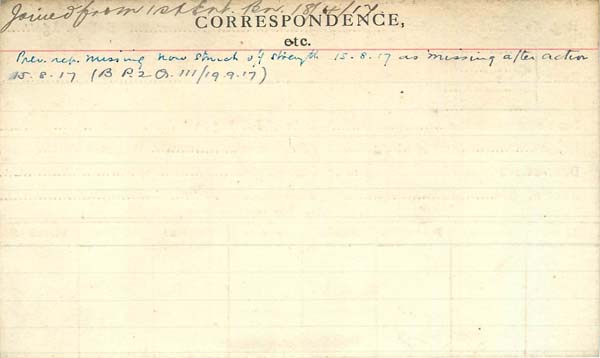 Joined from 1st Ent. Bn. 18/4/17.
CORRESPONDENCE,
etc.
Prev. rep. missing now struck off strength 15.8.17 as missing after action
15.8.17 (B P.2 O. 111/19.9.17)